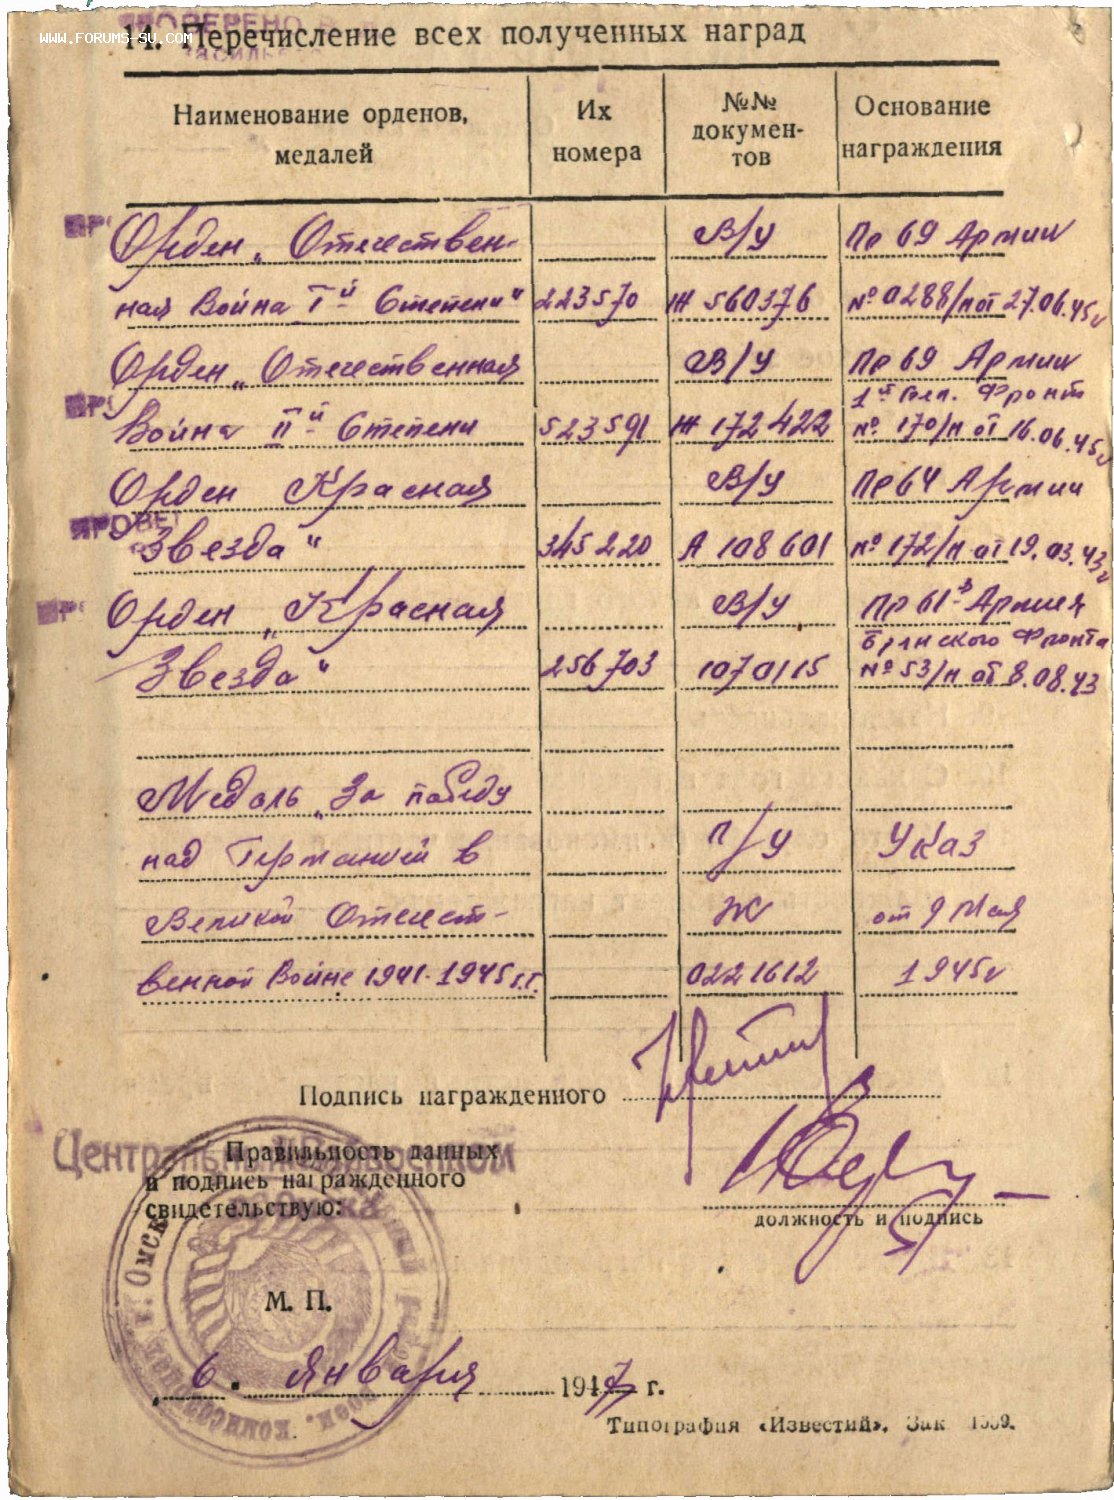 ПРОВЕРЕНО
WWW.FORUMS-SU.COM
14. Перечисление всех полученных наград
Наименование орденов, медалей
Их номера
№№ докумен-тов
Основание награждения
Орден „Отечествен- В/У Пр 69 Армии
ная Война I й Степени" 223570 Ж 560376 № 0288/н от 27.06.45г
Орден „Отечественная В/У Пр 69 Армии
1й Бел. Фронт
Война II й Степени 523591 Ж 172422 № 170/н от 16.06.45г
Орден Красная В/У Пр 64 Армии
Звезда" 345220 А 108601 № 172/н от 19.03.43г
Орден „Красная В/У Пр 61-й Армия
Брянского Фронта
Звезда" 256703 1070115 № 53/н от 8.08.43
Медаль „За победу
над Германией в П/У Указ
Великой Отечест- Ж от 9 Мая
венной Войне 1941-1945г.г. 0221612 1945г
Подпись награжденного
Центральный Райвоенком
Правильность данных
и подпись награжденного
свидетельствую:
должность и подпись
г. Омск
М. П.
6. Января 1947 г.
Типография «Известий». Зак